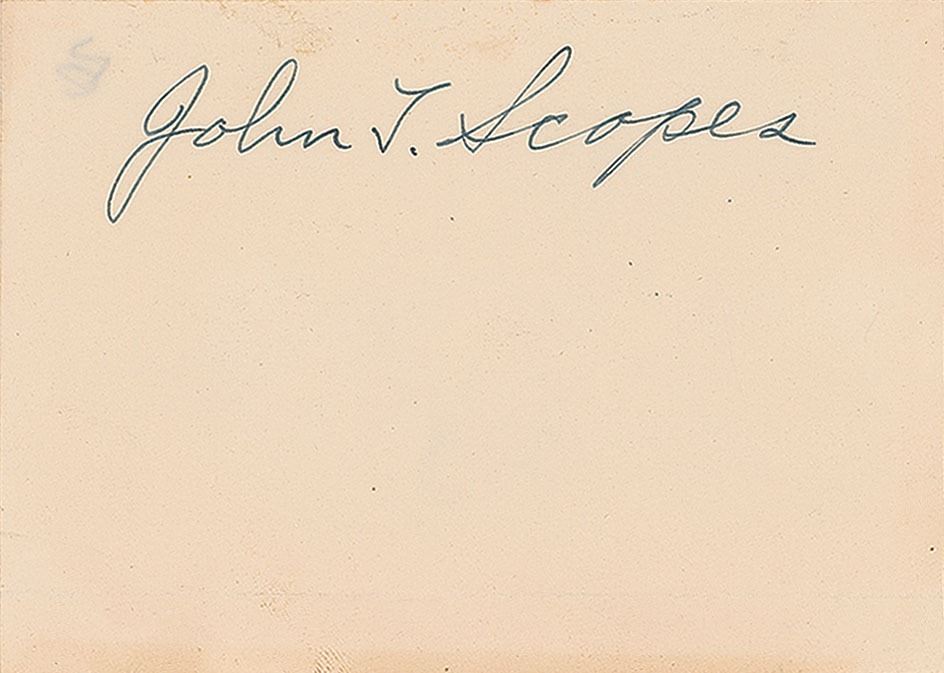 John T. Scopes